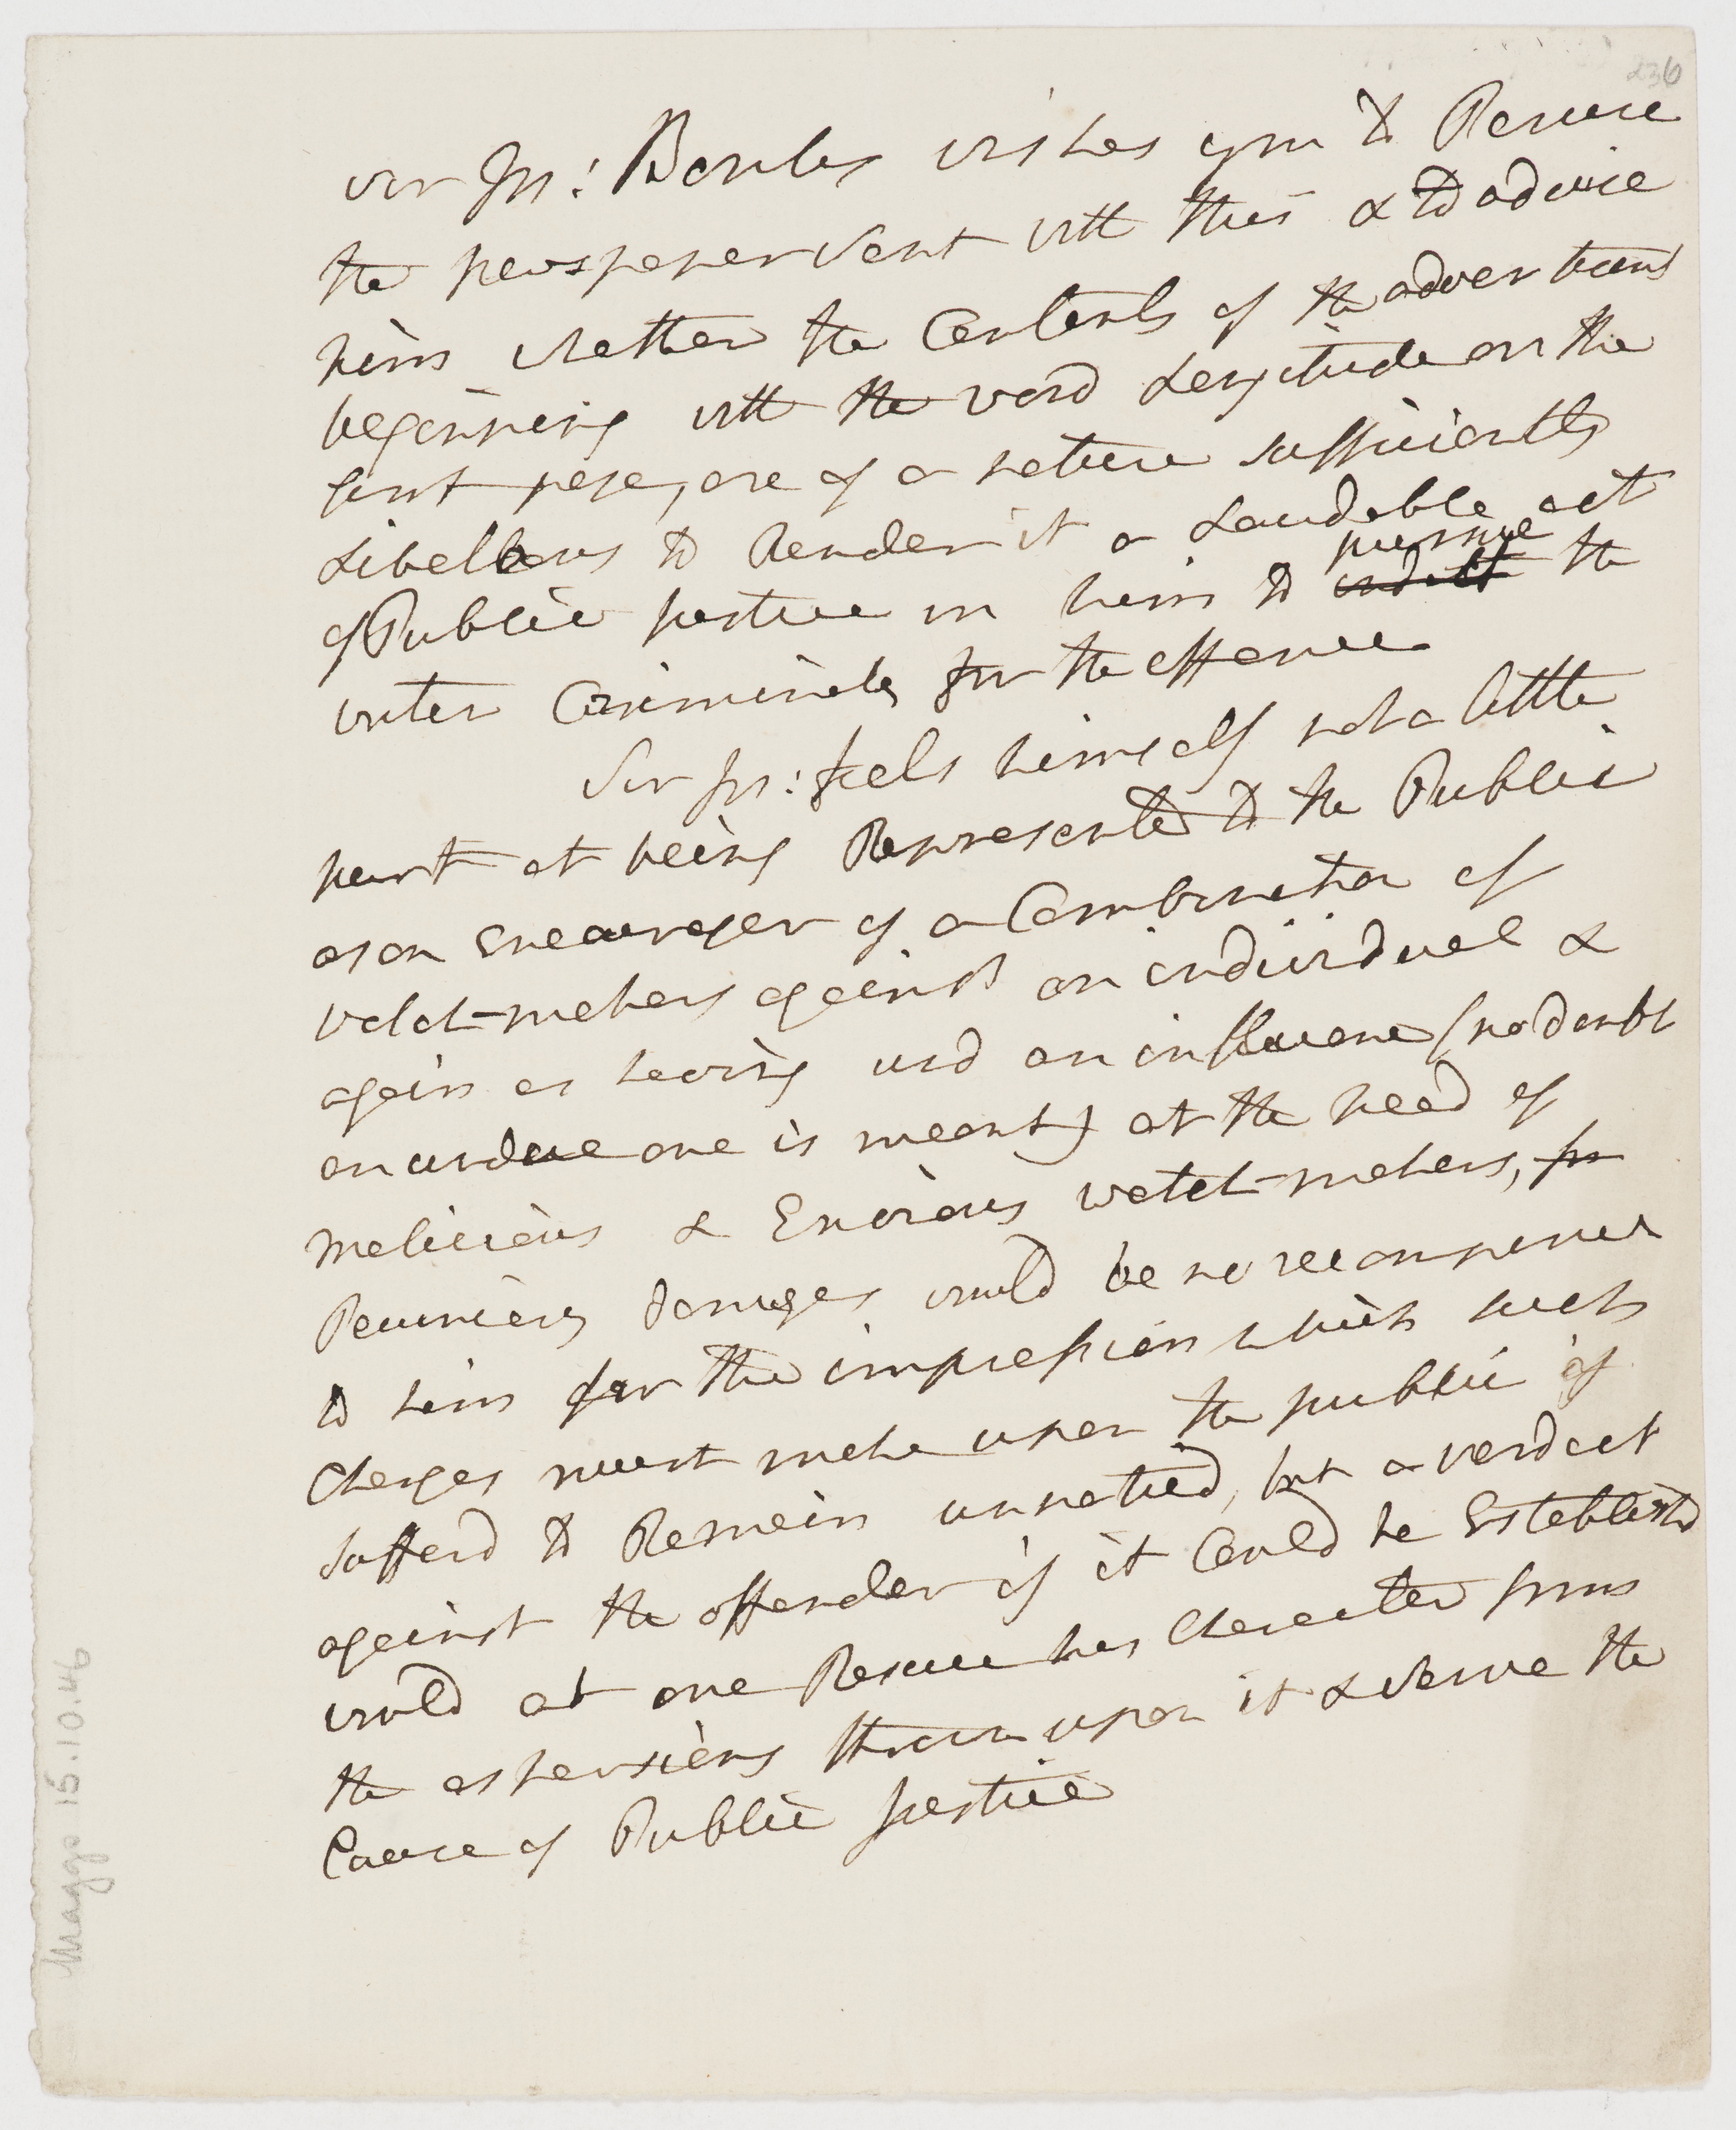 236
Sir Jos: Banks wishes you to Peruse
the newspaper Sent with this & to advise
him whether the Contents of the advertisemt
beginning with the word Longitude on the
first page, are of a nature sufficiently
Libellous to Render it a Laudable act
of Public justice in him to pursue the
indict
writer Criminaly for the offence
Sir Jos: feels himself not a little
hurt at being Represented to the Public
as an Encourager of a Combination of
watch-makers against an individual &
again as having usd an influence (no doubt
an undue one is meant) at the head of
malicious & Envious watch-makers, for
Pecuniary damages would be no recompence
to him for the impression which such
Charges must make upon the public if
sufferd to Remain unnoticed, but a verdict
against the offender if it Could be Establishd
would at once Rescue his Character from
the aspersions thrown upon it & serve the
Cause of Public justice
Maggs 15.10.46